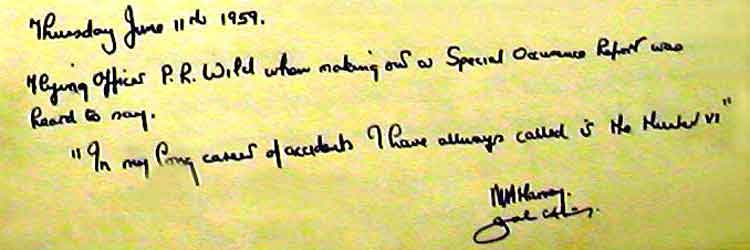 Thursday June 11th 1959.
Flying Officer P.R. Wild when making out a Special Occurance Report was
heard to say.
"In my long career of accidents I have allways called is the Hunter VI"